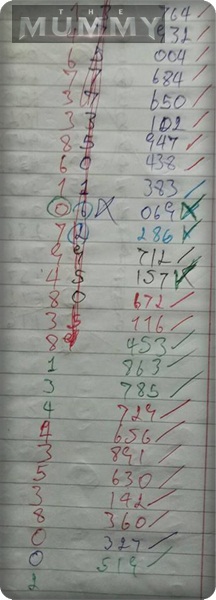 THE
MUMMY
764
932
6 8 004
7 684
3 650
3 102
8 5 947
6 0 438
1 1 383
0 069
7 286
712
4 5 157
8 0 672
3 5 116
8 453
1 863
3 785
4 729
4 656
3 891
5 630
3 142
8 360
0 327
0 519
2